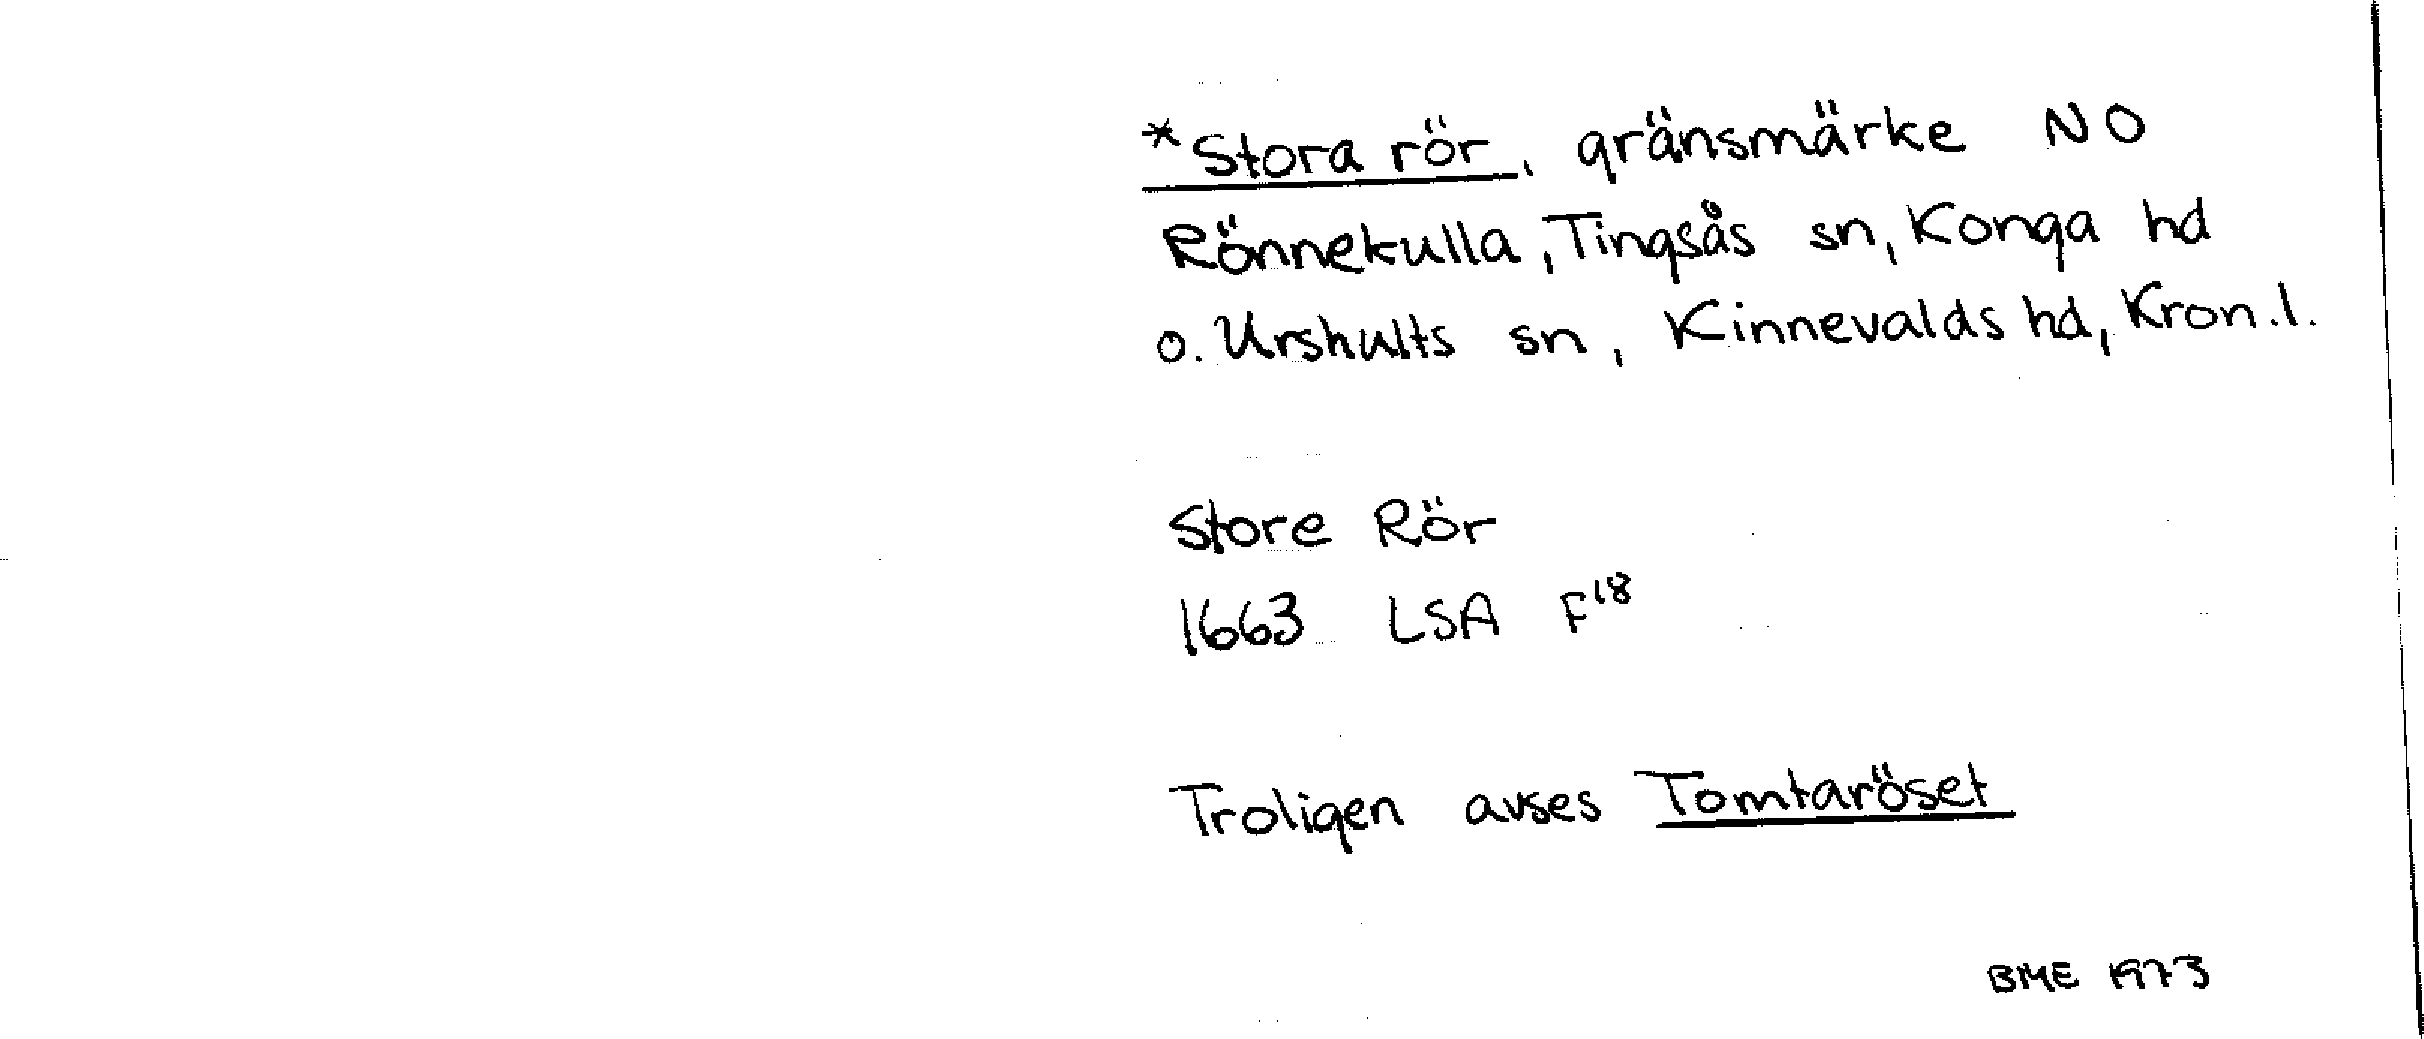 *Stora rör, gränsmärke NO
Rönnekulla, Tingsås sn, Konga hd
o. Urshults sn, Kinnevalds hd, Kron.l.
Store Rör
1663 LSA F¹⁸
Troligen avses Tomtaröset
BME 1973